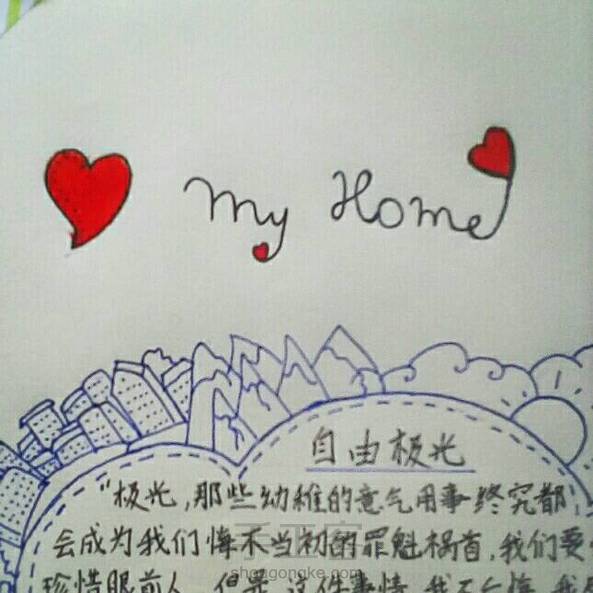 My Home
自由极光
"极光,那些幼稚的意气用事终究都
会成为我们悔不当初的罪魁祸首,我们要
珍惜眼前人,但是,这件事情,我不后悔,我
shougongke.com